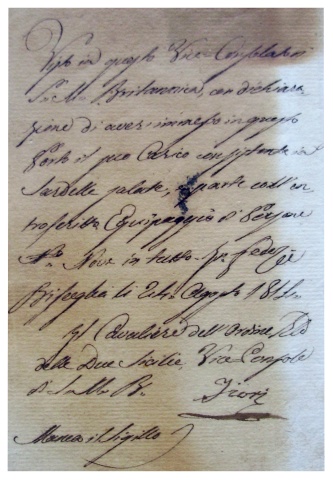 Visto in questo Vice Consolato di
S. M. Britannica, con dichiara
zione di aver immesso in questo
Porto il suo Carico consistente in
Sardelle salate, e parte coll'in
troscritto Equipaggio di Persone
N.o Nove in tutto. In fede
Bisceglia li 24. Agosto 18
Il Cavaliere dell'Ordine
delle Due Sicilie, Vice Console
di S. M. B.
Manca il Sigillo